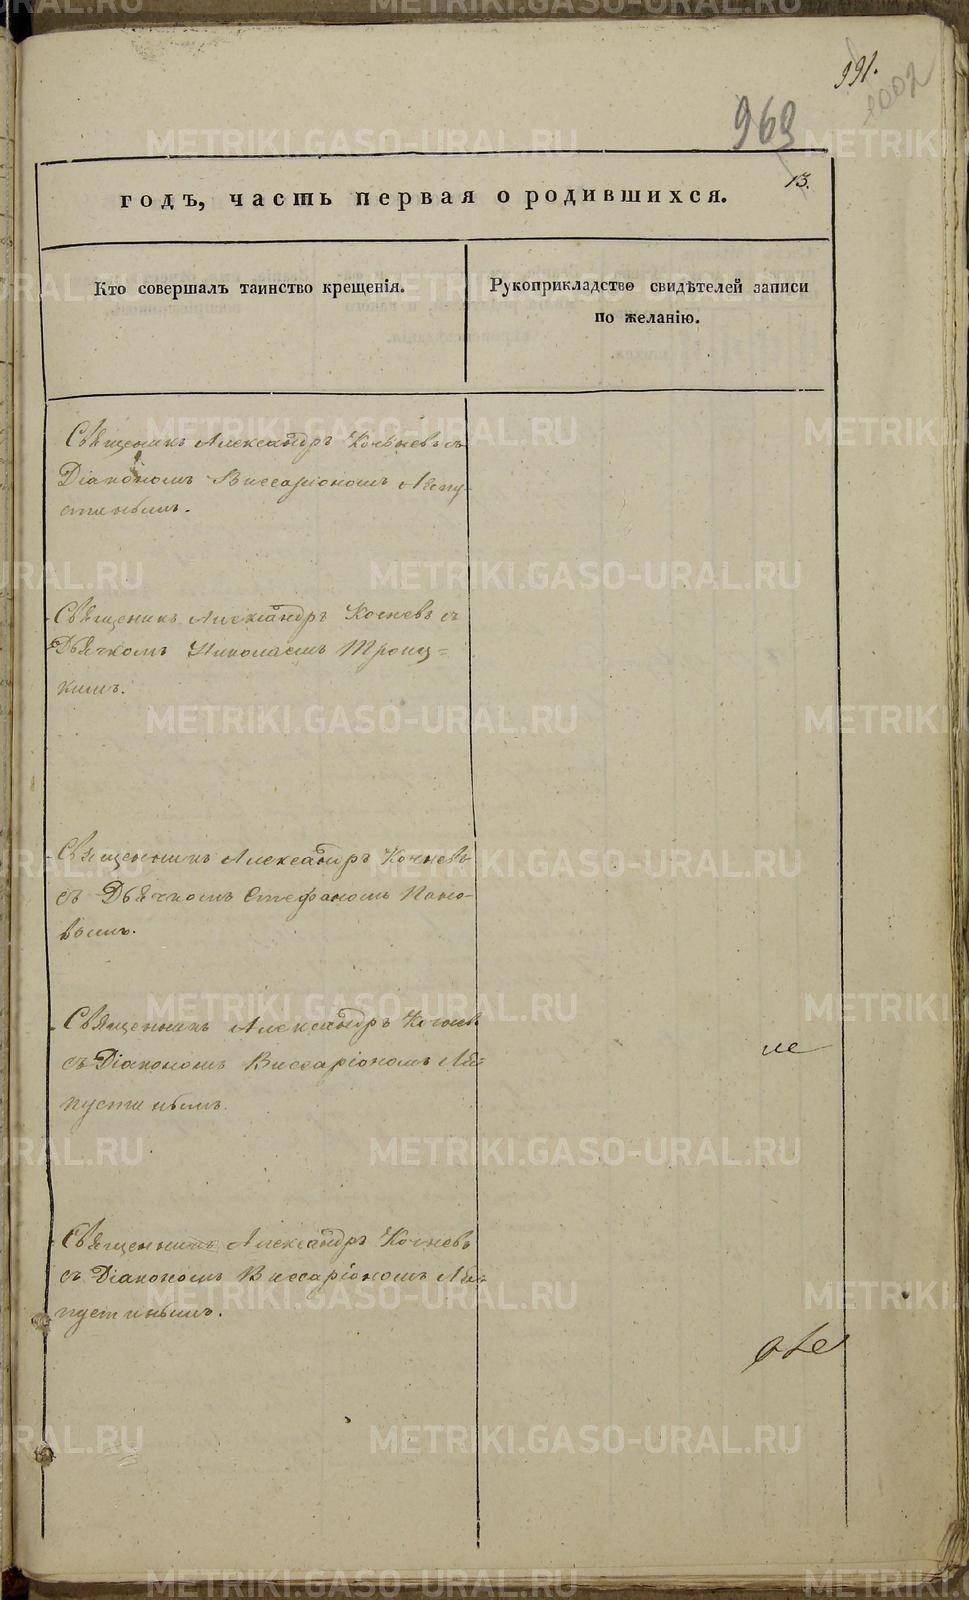 991.
1002
969
13.
годъ, часть первая о родившихся.
Кто совершалъ таинство крещенія.
Рукоприкладство свидѣтелей записи
по желанію.
Священникъ Александръ Кочневъ съ
Діакономъ Виссаріономъ Ляпу-
стинымъ.
Священникъ Александръ Кочневъ съ
Дьячкомъ Николаемъ Троиц=
кимъ.
Священникъ Александръ Кочневъ
съ Дьячкомъ Стефаномъ Попо-
вымъ.
Священникъ Александръ Кочневъ
съ Діакономъ Виссаріономъ Ля-
пустинымъ.
Священникъ Александръ Кочневъ
съ Діакономъ Виссаріономъ Ля-
пустинымъ.
METRIKI.GASO-URAL.RU